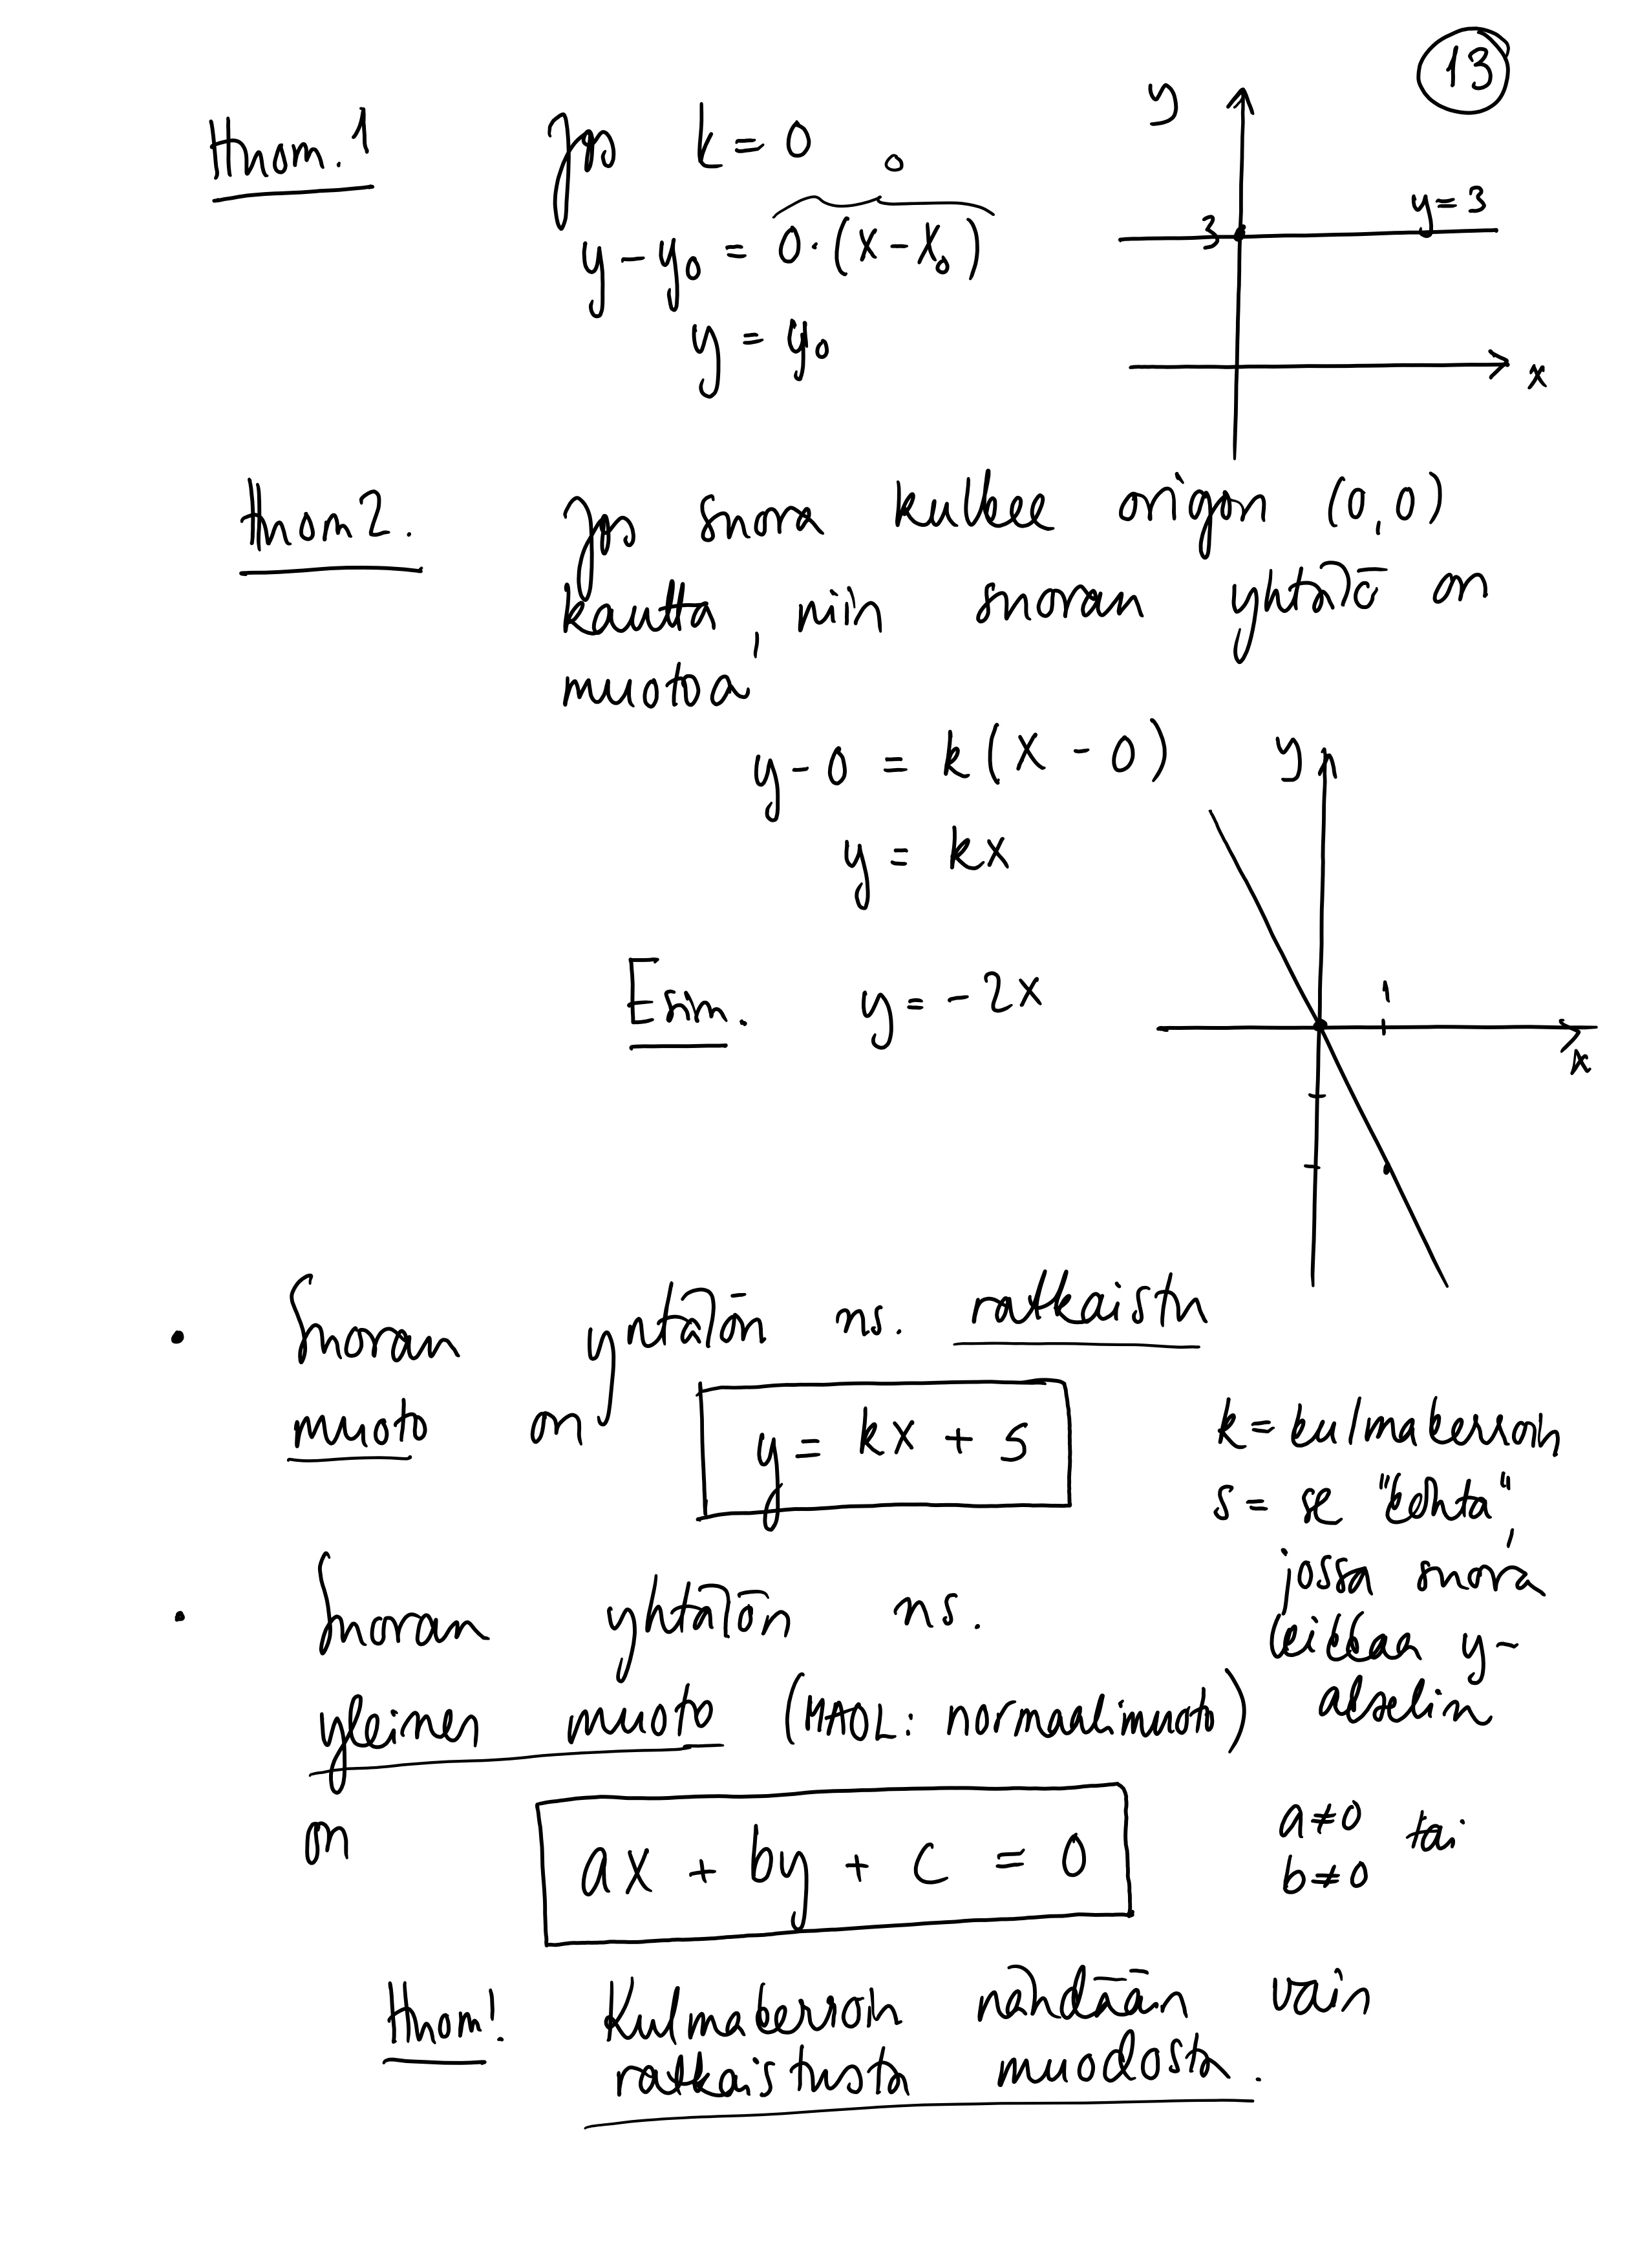 13
Huom. 1 Jos k = 0
0
y - y₀ = 0·(x - x₀)
y = y₀
y
3
y = 3
x
Huom 2. Jos suora kulkee origon (0,0)
kautta, niin suoran yhtälö on
muotoa
y - 0 = k(x - 0)
y = kx
Esim. y = -2x
y
1
x
• Suoran yhtälön ns. ratkaistu
muoto on y = kx + s
k = kulmakerroin
s = se "kohta",
jossa suora
leikkaa y-
akselin
• Suoran yhtälön ns.
yleinen muoto (MAOL: normaalimuoto)
on ax + by + c = 0
a ≠ 0 tai
b ≠ 0
Huom! Kulmakerroin nähdään vain
ratkaistusta muodosta.